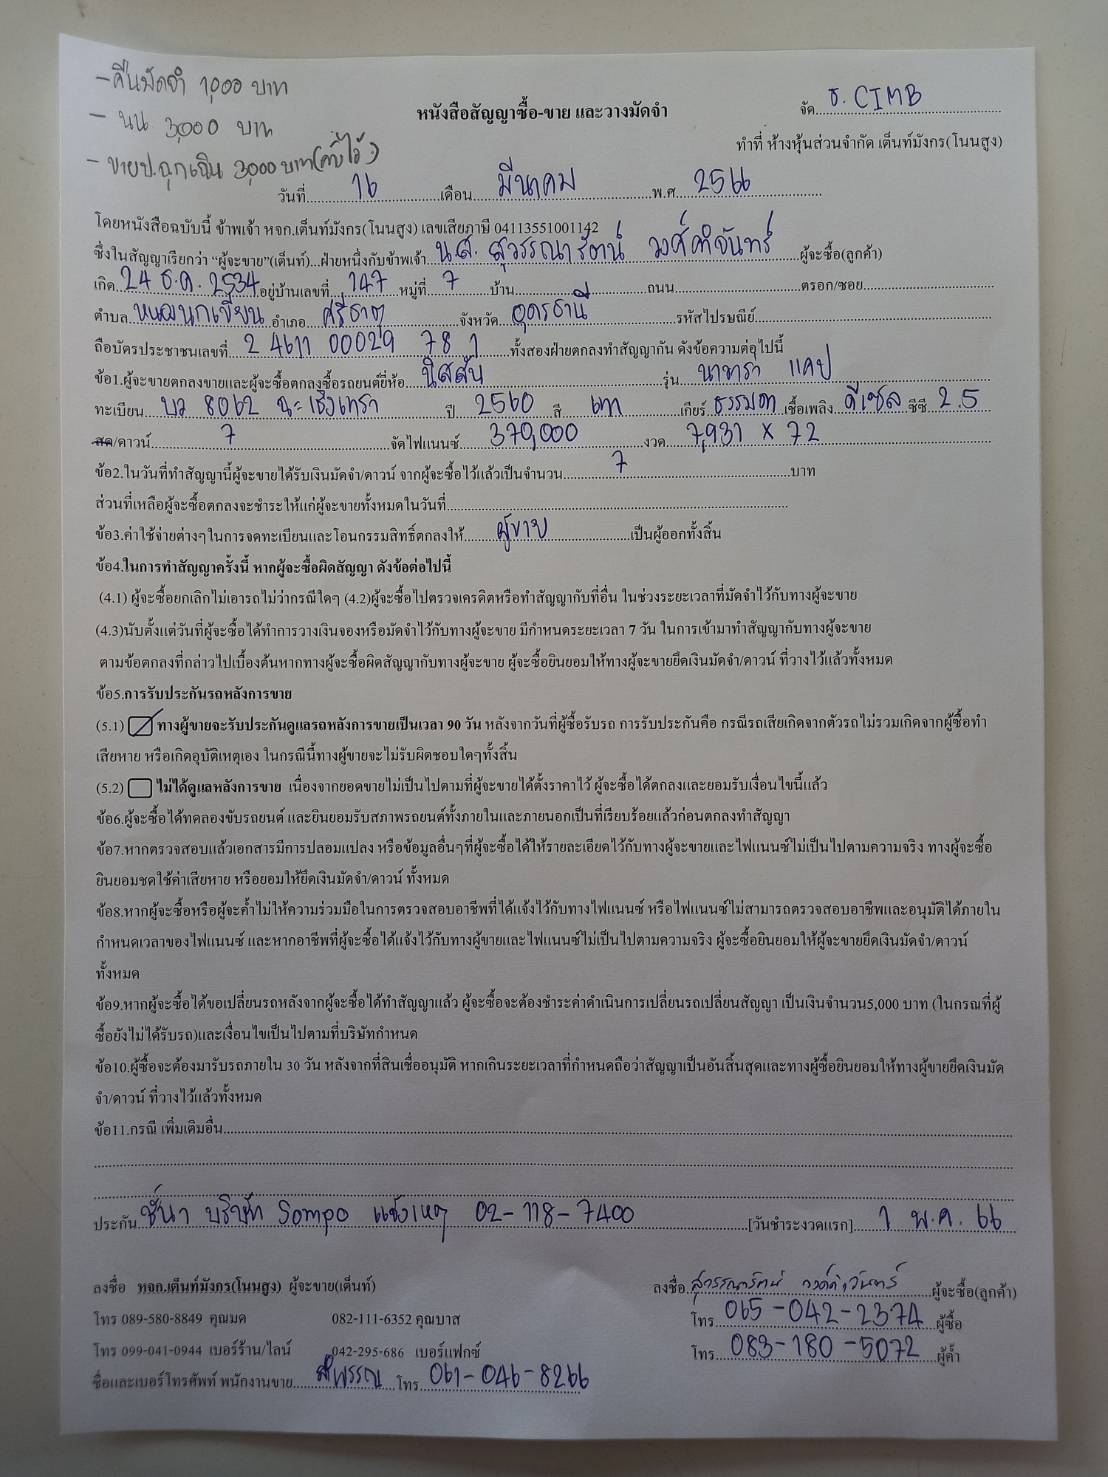 - คืนมัดจำ 1,000 บาท
- นน 3,000 บาท
- ขายป.ฉุกเฉิน 3,000 บาท
หนังสือสัญญาซื้อ-ขาย และวางมัดจำ
จัด ธ. CIMB
ทำที่ ห้างหุ้นส่วนจำกัด เต็นท์มังกร(โนนสูง)
วันที่ 16 เดือน มีนาคม พ.ศ 2566
โดยหนังสือฉบับนี้ ข้าพเจ้า หจก.เต็นท์มังกร(โนนสูง) เลขเสียภาษี 04113551001142
ซึ่งในสัญญาเรียกว่า "ผู้จะขาย"(เต็นท์)...ฝ่ายหนึ่งกับข้าพเจ้า น.ส. สุวรรณารัตน์ วงศ์คำจันทร์ ผู้จะซื้อ(ลูกค้า)
เกิด 24 ธ.ค. 2534 อยู่บ้านเลขที่ 147 หมู่ที่ 7 บ้าน ถนน ตรอก/ซอย
ตำบล หนองนกเขียน อำเภอ ศรีธาตุ จังหวัด อุดรธานี รหัสไปรษณีย์
ถือบัตรประชาชนเลขที่ 2 4611 00029 78 1 ทั้งสองฝ่ายตกลงทำสัญญากัน ดังข้อความต่อไปนี้
ข้อ1.ผู้จะขายตกลงขายและผู้จะซื้อตกลงซื้อรถยนต์ยี่ห้อ นิสสัน รุ่น นาวาร่า แคป
ทะเบียน บว 8062 ฉะเชิงเทรา ปี 2560 สี เทา เกียร์ ธรรมดา เชื้อเพลิง ดีเซล ซีซี 2.5
สด/ดาวน์ 7 จัดไฟแนนซ์ 379,000 งวด 7,931 x 72
ข้อ2.ในวันที่ทำสัญญานี้ผู้จะขายได้รับเงินมัดจำ/ดาวน์ จากผู้จะซื้อไว้แล้วเป็นจำนวน 7 บาท
ส่วนที่เหลือผู้จะซื้อตกลงจะชำระให้แก่ผู้จะขายทั้งหมดในวันที่
ข้อ3.ค่าใช้จ่ายต่างๆในการจดทะเบียนและโอนกรรมสิทธิ์ตกลงให้ ผู้ขาย เป็นผู้ออกทั้งสิ้น
ข้อ4.ในการทำสัญญาครั้งนี้ หากผู้จะซื้อผิดสัญญา ดังข้อต่อไปนี้
(4.1) ผู้จะซื้อยกเลิกไม่เอารถไม่ว่ากรณีใดๆ (4.2)ผู้จะซื้อไปตรวจเครดิตหรือทำสัญญากับที่อื่น ในช่วงระยะเวลาที่มัดจำไว้กับทางผู้จะขาย
(4.3)นับตั้งแต่วันที่ผู้จะซื้อได้ทำการวางเงินจองหรือมัดจำไว้กับทางผู้จะขาย มีกำหนดระยะเวลา 7 วัน ในการเข้ามาทำสัญญากับทางผู้จะขาย
ตามข้อตกลงที่กล่าวไปเบื้องต้นหากทางผู้จะซื้อผิดสัญญากับทางผู้จะขาย ผู้จะซื้อยินยอมให้ทางผู้จะขายยึดเงินมัดจำ/ดาวน์ ที่วางไว้แล้วทั้งหมด
ข้อ5.การรับประกันรถหลังการขาย
(5.1) ทางผู้ขายจะรับประกันดูแลรถหลังการขายเป็นเวลา 90 วัน หลังจากวันที่ผู้ซื้อรับรถ การรับประกันคือ กรณีรถเสียเกิดจากตัวรถไม่รวมเกิดจากผู้ซื้อทำ
เสียหาย หรือเกิดอุบัติเหตุเอง ในกรณีนี้ทางผู้ขายจะไม่รับผิดชอบใดๆทั้งสิ้น
(5.2) ไม่ได้ดูแลหลังการขาย เนื่องจากยอดขายไม่เป็นไปตามที่ผู้จะขายได้ตั้งราคาไว้ ผู้จะซื้อได้ตกลงและยอมรับเงื่อนไขนี้แล้ว
ข้อ6.ผู้จะซื้อได้ทดลองขับรถยนต์ และยินยอมรับสภาพรถยนต์ทั้งภายในและภายนอกเป็นที่เรียบร้อยแล้วก่อนตกลงทำสัญญา
ข้อ7.หากตรวจสอบแล้วเอกสารมีการปลอมแปลง หรือข้อมูลอื่นๆที่ผู้จะซื้อได้ให้รายละเอียดไว้กับทางผู้จะขายและไฟแนนซ์ไม่เป็นไปตามความจริง ทางผู้จะซื้อ
ยินยอมชดใช้ค่าเสียหาย หรือยอมให้ยึดเงินมัดจำ/ดาวน์ ทั้งหมด
ข้อ8.หากผู้จะซื้อหรือผู้จะค้ำไม่ให้ความร่วมมือในการตรวจสอบอาชีพที่ได้แจ้งไว้กับทางไฟแนนซ์ หรือไฟแนนซ์ไม่สามารถตรวจสอบอาชีพและอนุมัติได้ภายใน
กำหนดเวลาของไฟแนนซ์ และหากอาชีพที่ผู้จะซื้อได้แจ้งไว้กับทางผู้ขายและไฟแนนซ์ไม่เป็นไปตามความจริง ผู้จะซื้อยินยอมให้ผู้จะขายยึดเงินมัดจำ/ดาวน์
ทั้งหมด
ข้อ9.หากผู้จะซื้อได้ขอเปลี่ยนรถหลังจากผู้จะซื้อได้ทำสัญญาแล้ว ผู้จะซื้อจะต้องชำระค่าดำเนินการเปลี่ยนรถเปลี่ยนสัญญา เป็นเงินจำนวน5,000 บาท (ในกรณที่ผู้
ซื้อยังไม่ได้รับรถ)และเงื่อนไขเป็นไปตามที่บริษัทกำหนด
ข้อ10.ผู้ซื้อจะต้องมารับรถภายใน 30 วัน หลังจากที่สินเชื่ออนุมัติ หากเกินระยะเวลาที่กำหนดถือว่าสัญญาเป็นอันสิ้นสุดและทางผู้ซื้อยินยอมให้ทางผู้ขายยึดเงินมัด
จำ/ดาวน์ ที่วางไว้แล้วทั้งหมด
ข้อ11.กรณี เพิ่มเติมอื่น
ประกัน ชั้น1 บริษัท Sompo แจ้งเหตุ 02-118-7400 [วันชำระงวดแรก] 1 พ.ค. 66
ลงชื่อ หจก.เต็นท์มังกร(โนนสูง) ผู้จะขาย(เต็นท์)
ลงชื่อ สุวรรณารัตน์ วงค์คำจันทร์ ผู้จะซื้อ(ลูกค้า)
โทร 089-580-8849 คุณมด 082-111-6352 คุณบาส
โทร 065-042-2374 ผู้ซื้อ
โทร 099-041-0944 เบอร์ร้าน/ไลน์ 042-295-686 เบอร์แฟกซ์
โทร 083-180-5072 ผู้ค้ำ
ชื่อและเบอร์โทรศัพท์ พนักงานขาย โทร 061-046-8266